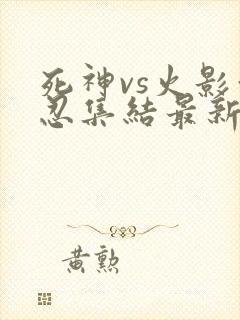 死神vs火影
忍集結最新
黃勲